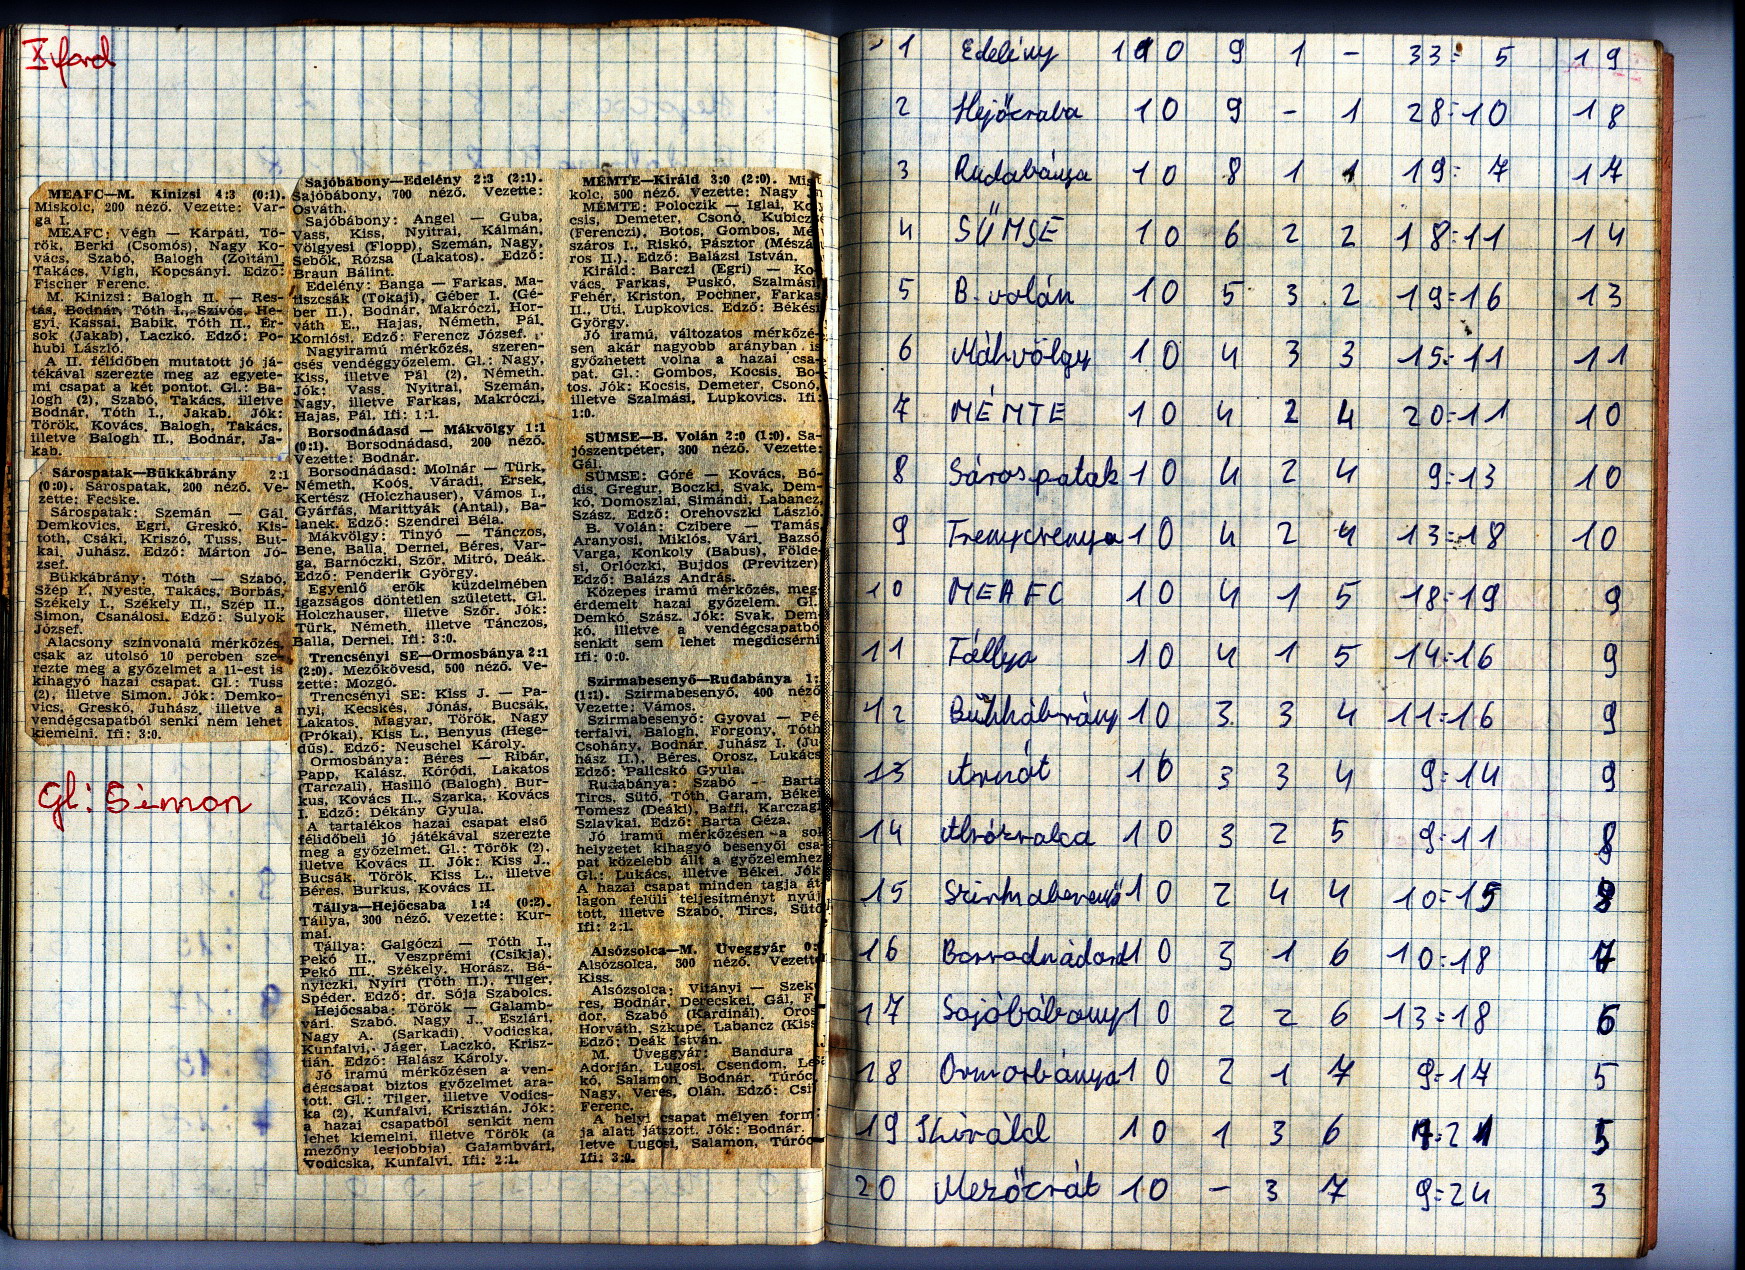 X. ford
MEAFC—M. Kinizsi 4:3 (0:1).
Miskolc, 200 néző. Vezette: Var-
ga I.
MEAFC: Végh — Kárpáti, Tö-
rök, Berki (Csomós), Nagy Ko-
vács, Szabó, Balogh (Zoltán),
Takács, Vigh, Kopcsányi. Edző:
Fischer Ferenc.
M. Kinizsi: Balogh II. — Res-
tás, Bodnár, Tóth I., Szívós, He-
gyi, Kassai, Babik, Tóth II., Ér-
sok (Jakab), Laczkó. Edző: Po-
hubi László.
A II. félidőben mutatott jó já-
tékával szerezte meg az egyete-
mi csapat a két pontot. Gl.: Ba-
logh (2), Szabó, Takács, illetve
Bodnár, Tóth I., Jakab. Jók:
Török, Kovács, Balogh, Takács,
illetve Balogh II., Bodnár, Ja-
kab.
Sárospatak—Bükkábrány 2:1
(0:0). Sárospatak, 200 néző. Ve-
zette: Fecske.
Sárospatak: Szemán — Gál,
Demkovics, Egri, Greskó, Kis-
tóth, Csáki, Kriszó, Tuss, But-
kai, Juhász. Edző: Márton Jó-
zsef.
Bükkábrány: Tóth — Szabó,
Szép I., Nyeste, Takács, Borbás,
Székely I., Székely II., Szép II.,
Simon, Csanálosi. Edző: Sulyok
József.
Alacsony színvonalú mérkőzés,
csak az utolsó 10 percben sze-
rezte meg a győzelmet a 11-est is
kihagyó hazai csapat. Gl.: Tuss
(2), illetve Simon. Jók: Demko-
vics, Greskó, Juhász, illetve a
vendégcsapatból senki nem lehet
kiemelni. Ifi: 3:0.
Gl: Simon
Sajóbábony—Edelény 2:3 (2:1).
Sajóbábony, 700 néző. Vezette:
Osváth.
Sajóbábony: Angel — Guba,
Vass, Kiss, Nyitrai, Kálmán,
Völgyesi (Flopp), Szemán, Nagy,
Sebők, Rózsa (Lakatos). Edző:
Braun Bálint.
Edelény: Banga — Farkas, Ma-
tiszcsák (Tokaji), Géber I. (Gé-
ber II.), Bodnár, Makróczi, Hor-
váth E., Hajas, Németh, Pál,
Komlósi. Edző: Ferencz József.
Nagyiramú mérkőzés, szeren-
csés vendéggyőzelem. Gl.: Nagy,
Kiss, illetve Pál (2), Németh.
Jók: Vass, Nyitrai, Szemán,
Nagy, illetve Farkas, Makróczi,
Hajas, Pál. Ifi: 1:1.
Borsodnádasd — Mákvölgy 1:1
(0:1). Borsodnádasd, 200 néző.
Vezette: Bodnár.
Borsodnádasd: Molnár — Türk,
Németh, Koós, Váradi, Érsek,
Kertész (Holczhauser), Vámos I.,
Gyárfás, Marittyák (Antal), Ba-
lanek. Edző: Szendrei Béla.
Mákvölgy: Tinyó — Tánczos,
Bene, Balla, Dernei, Béres, Var-
ga, Barnóczki, Szőr, Mitró, Deák.
Edző: Penderik György.
Egyenlő erők küzdelmében
igazságos döntetlen született. Gl.
Holczhauser, illetve Szőr. Jók:
Türk, Németh, illetve Tánczos,
Balla, Dernei. Ifi: 3:0.
Trencsényi SE—Ormosbánya 2:1
(2:0). Mezőkövesd, 500 néző. Ve-
zette: Mozgó.
Trencsényi SE: Kiss J. — Pa-
nyi, Kecskés, Jónás, Bucsák,
Lakatos, Magyar, Török, Nagy
(Prókai), Kiss L., Benyus (Hege-
dűs). Edző: Neuschel Károly.
Ormosbánya: Béres — Ribár,
Papp, Kalász, Kóródi, Lakatos
(Tarczali), Hasilló (Balogh), Bur-
kus, Kovács II., Szarka, Kovács
I. Edző: Dékány Gyula.
A tartalékos hazai csapat első
félidőbeli jó játékával szerezte
meg a győzelmet. Gl.: Török (2),
illetve Kovács II. Jók: Kiss J.,
Bucsák, Török, Kiss L., illetve
Béres, Burkus, Kovács II.
Tállya—Hejőcsaba 1:4 (0:2).
Tállya, 300 néző. Vezette: Kur-
mai.
Tállya: Galgóczi — Tóth I.,
Pekó II., Veszprémi (Csikja),
Pekó III., Székely, Horász, Bá-
nyiczki, Nyíri (Tóth II.), Tilger,
Spéder. Edző: dr. Sója Szabolcs.
Hejőcsaba: Török — Galamb-
vári, Szabó, Nagy J., Eszlári,
Nagy A. (Sarkadi), Vodicska,
Kunfalvi, Jáger, Laczkó, Krisz-
tián. Edző: Halász Károly.
Jó iramú mérkőzésen a ven-
dégcsapat biztos győzelmet ara-
tott. Gl.: Tilger, illetve Vodics-
ka (2), Kunfalvi, Krisztián. Jók:
a hazai csapatból senkit nem
lehet kiemelni, illetve Török (a
mezőny legjobbja), Galambvári,
Vodicska, Kunfalvi. Ifi: 2:1.
MÉMTE—Királd 3:0 (2:0). Mis
kolc, 500 néző. Vezette: Nagy
MÉMTE: Poloczik — Iglai, Ko
csis, Demeter, Csonó, Kubicz
(Ferenczi), Botos, Gombos, Mé
száros I., Riskó, Pásztor (Mészá
ros II.). Edző: Balázsi István.
Királd: Barczi (Egri) — Ko
vács, Farkas, Puskó, Szalmási
Fehér, Kriston, Pochner, Farkas
II., Uti, Lupkovics. Edző: Békési
György.
Jó iramú, változatos mérkőzé-
sen akár nagyobb arányban is
győzhetett volna a hazai csa-
pat. Gl.: Gombos, Kocsis, Bo-
tos. Jók: Kocsis, Demeter, Csonó,
illetve Szalmási, Lupkovics. Ifi:
1:0.
SÜMSE—B. Volán 2:0 (1:0). Sa-
jószentpéter, 300 néző. Vezette:
Gál.
SÜMSE: Góré — Kovács, Bó-
dis, Gregur, Boczki, Svak, Dem-
kó, Domoszlai, Simándi, Labancz,
Szász. Edző: Orehovszki László.
B. Volán: Czibere — Tamás,
Aranyosi, Miklós, Vári, Bazsó,
Varga, Konkoly (Babus), Földe-
si, Orlóczki, Bujdos (Previtzer)
Edző: Balázs András.
Közepes iramú mérkőzés, meg
érdemelt hazai győzelem. Gl.
Demkó, Szász. Jók: Svak, Dem-
kó, illetve a vendégcsapatbó
senkit sem lehet megdicsérni
Ifi: 0:0.
Szirmabesenyő—Rudabánya 1:
(1:1). Szirmabesenyő, 400 néző
Vezette: Vámos.
Szirmabesenyő: Gyovai — Pé
terfalvi, Balogh, Forgony, Tóth
Csohány, Bodnár, Juhász I. (Ju
hász II.), Béres, Orosz, Lukács
Edző: Palicskó Gyula.
Rudabánya: Szabó — Barta
Tircs, Sütő, Tóth, Garam, Béke
Tomesz (Deáki), Baffi, Karczagi
Szlavkai. Edző: Barta Géza.
Jó iramú mérkőzésen a sok
helyzetet kihagyó besenyői csa-
pat közelebb állt a győzelemhez
Gl.: Lukács, illetve Békei. Jók
A hazai csapat minden tagja át
lagon felüli teljesítményt nyúj
tott, illetve Szabó, Tircs, Sütő
Ifi: 2:1.
Alsózsolca—M. Üveggyár 0:
Alsózsolca, 300 néző. Vezette
Kiss.
Alsózsolca: Vitányi — Szek
res, Bodnár, Derecskei, Gál, F
dor, Szabó (Kardinál), Oros
Horváth, Szkupé, Labancz (Kiss
Edző: Deák István.
M. Üveggyár: Bandura
Adorján, Lugosi, Csendom, Le
kó, Salamon, Bodnár, Túróc
Nagy, Veres, Oláh. Edző: Csi
Ferenc.
A helyi csapat mélyen form
ja alatt játszott. Jók: Bodnár,
letve Lugosi, Salamon, Túróc
Ifi: 3:0.
1 Edelény 10 9 1 - 33:5 19
2 Hejőcsaba 10 9 - 1 28:10 18
3 Rudabánya 10 8 1 1 19:7 17
4 SÜMSE 10 6 2 2 18:11 14
5 B. volán 10 5 3 2 19:16 13
6 Mákvölgy 10 4 3 3 15:11 11
7 MÉMTE 10 4 2 4 20:11 10
8 Sárospatak 10 4 2 4 9:13 10
9 Trencsenyi 10 4 2 4 13:18 10
10 MEAFC 10 4 1 5 18:19 9
11 Tállya 10 4 1 5 14:16 9
12 Bükkábrány 10 3 3 4 11:16 9
13 Arnót 10 3 3 4 9:14 9
14 Alsózsolca 10 3 2 5 9:11 8
15 Szirmabesenyő 10 2 4 4 10:15 8
16 Borsodnádasd 10 3 1 6 10:18 7
17 Sajóbábony 10 2 2 6 13:18 6
18 Ormosbanya 10 2 1 7 9:17 5
19 Királd 10 1 3 6 7:21 5
20 Mezőcsát 10 - 3 7 9:24 3